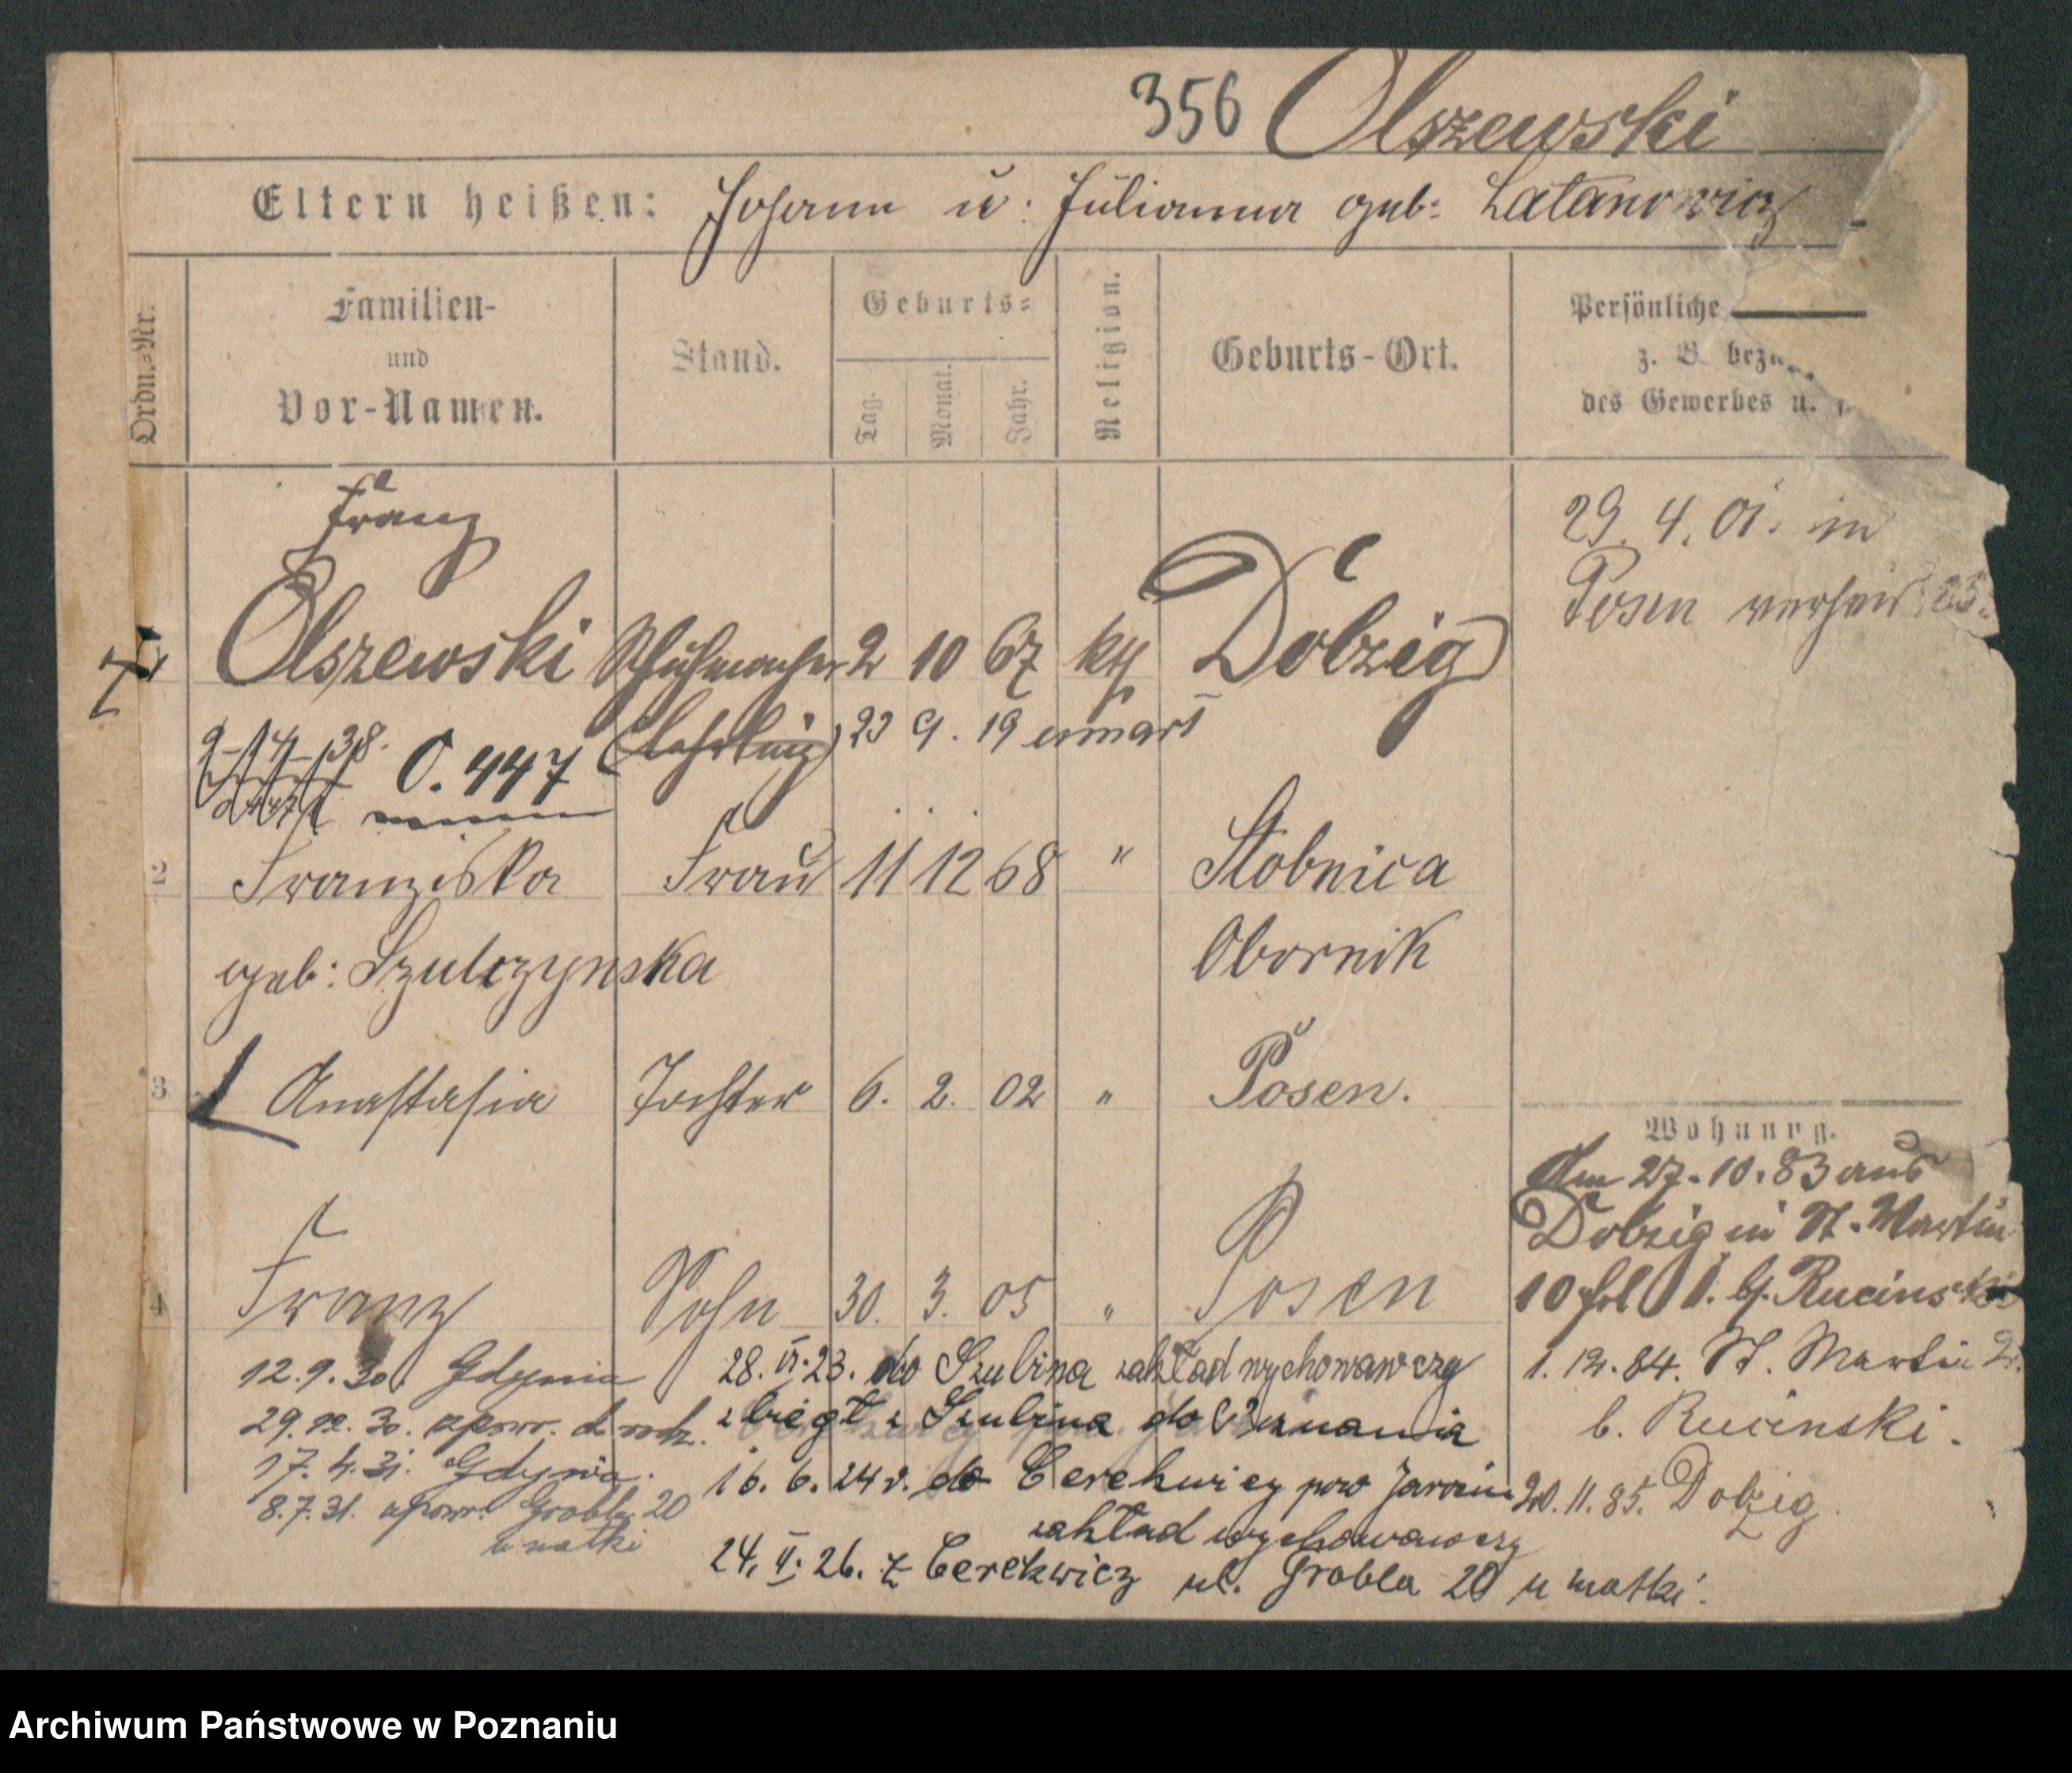 356 Olszewski
Eltern heißen: Johann u: Julianna geb: Latanowicz
Ordn.-Nr.
Familien-
und
Vor-Namen.
Stand.
Geburts-
Tag.
Monat.
Jahr.
Religion.
Geburts-Ort.
Persönliche
z. B. bez
des Gewerbes u.
Franz
Olszewski Schuhmacher 2 10 67 kth Dolzig
(lehrling) 23 9. 19 umarł
29. 4. 01. in
Posen verheir
2-14-38.
O. 447
2 Franziska Frau 11 12 68 " Stobnica
geb: Szulczynska Obornik
3 Anastasia Tochter 6. 2. 02 " Posen.
4 Franz Sohn 30. 3. 05 " Posen
12.9.30. Gdynia
29.12.30. apowr. d.
17.4.31. Gdynia.
8.7.31. apowr. Grobla 20
u matki
28.VI.23. do Szubina zakład wychowawczy
zbiegł z Szubina do Poznania
16.6.24 r. do Cerekwicy pow Jarocin
zakład wychowawczy
24.II.26. z Cerekwicz ul. Grobla 20 u matki.
Wohnung.
Am 27.10.83 aus
Dolzig in St. Martin
10 b. Rucinski
1.12.84. St. Martin 2
b. Rucinski.
20.11.85. Dolzig.
Archiwum Państwowe w Poznaniu